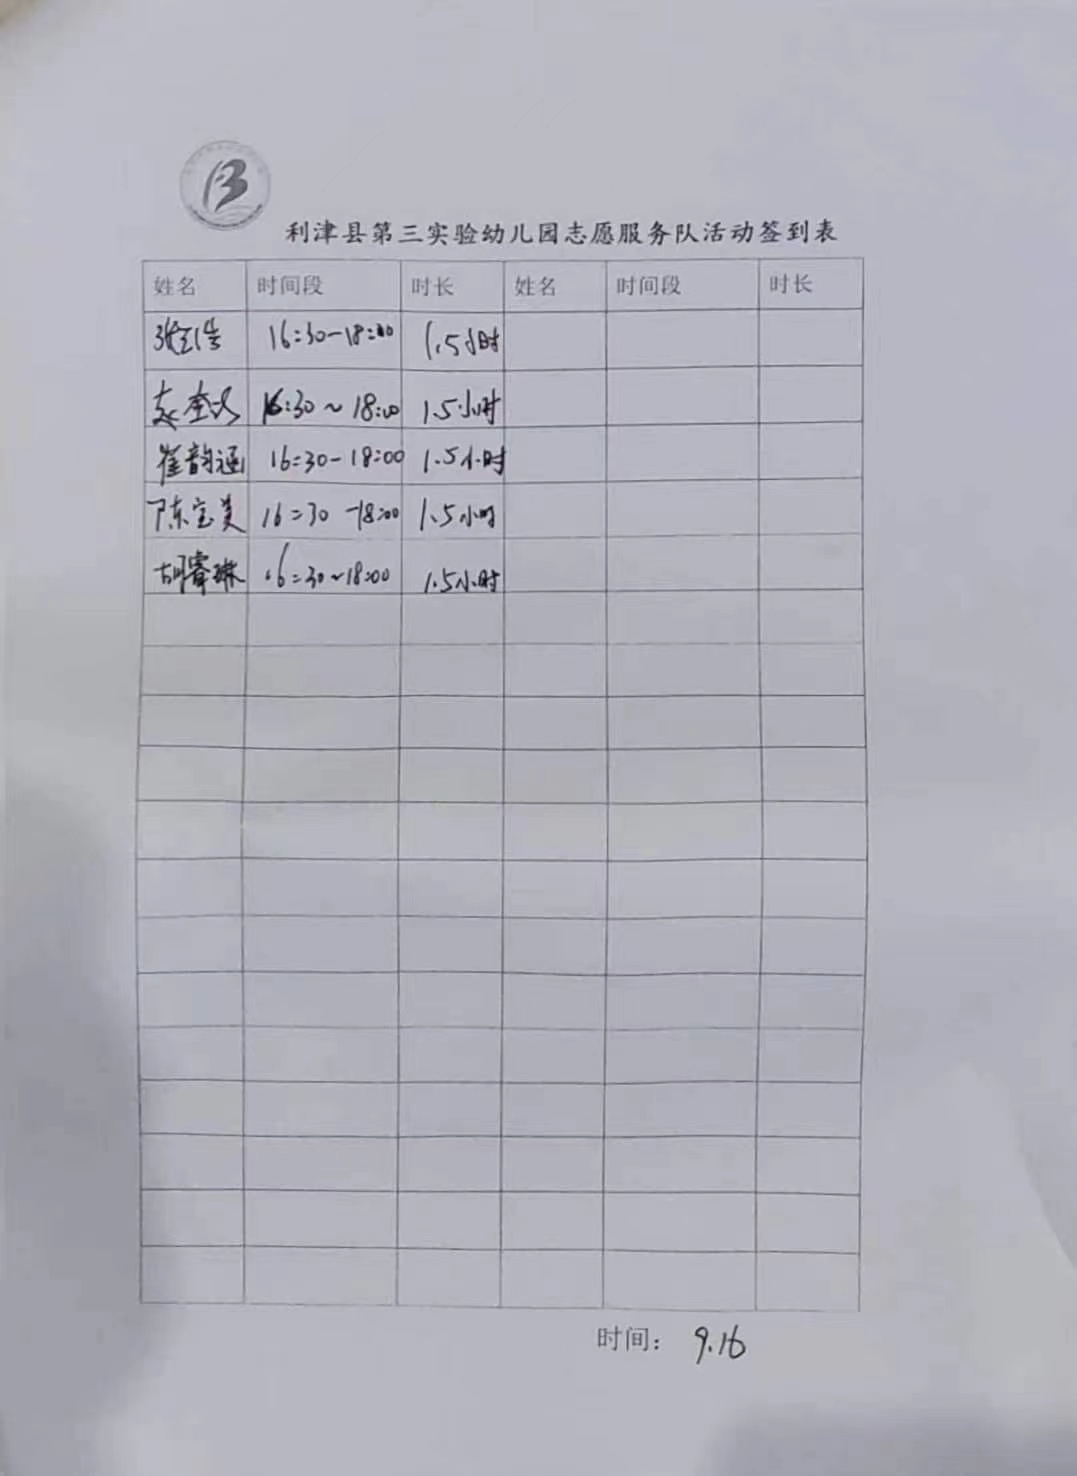 利津县第三实验幼儿园志愿服务队活动签到表
姓名 时间段 时长 姓名 时间段 时长
16:30-18:00 1.5小时
赵 16:30~18:00 1.5小时
崔韵涵 16:30-18:00 1.5小时
陈宝美 16:30-18:00 1.5小时
胡睿琳 16:30~18:00 1.5小时
时间: 9.16